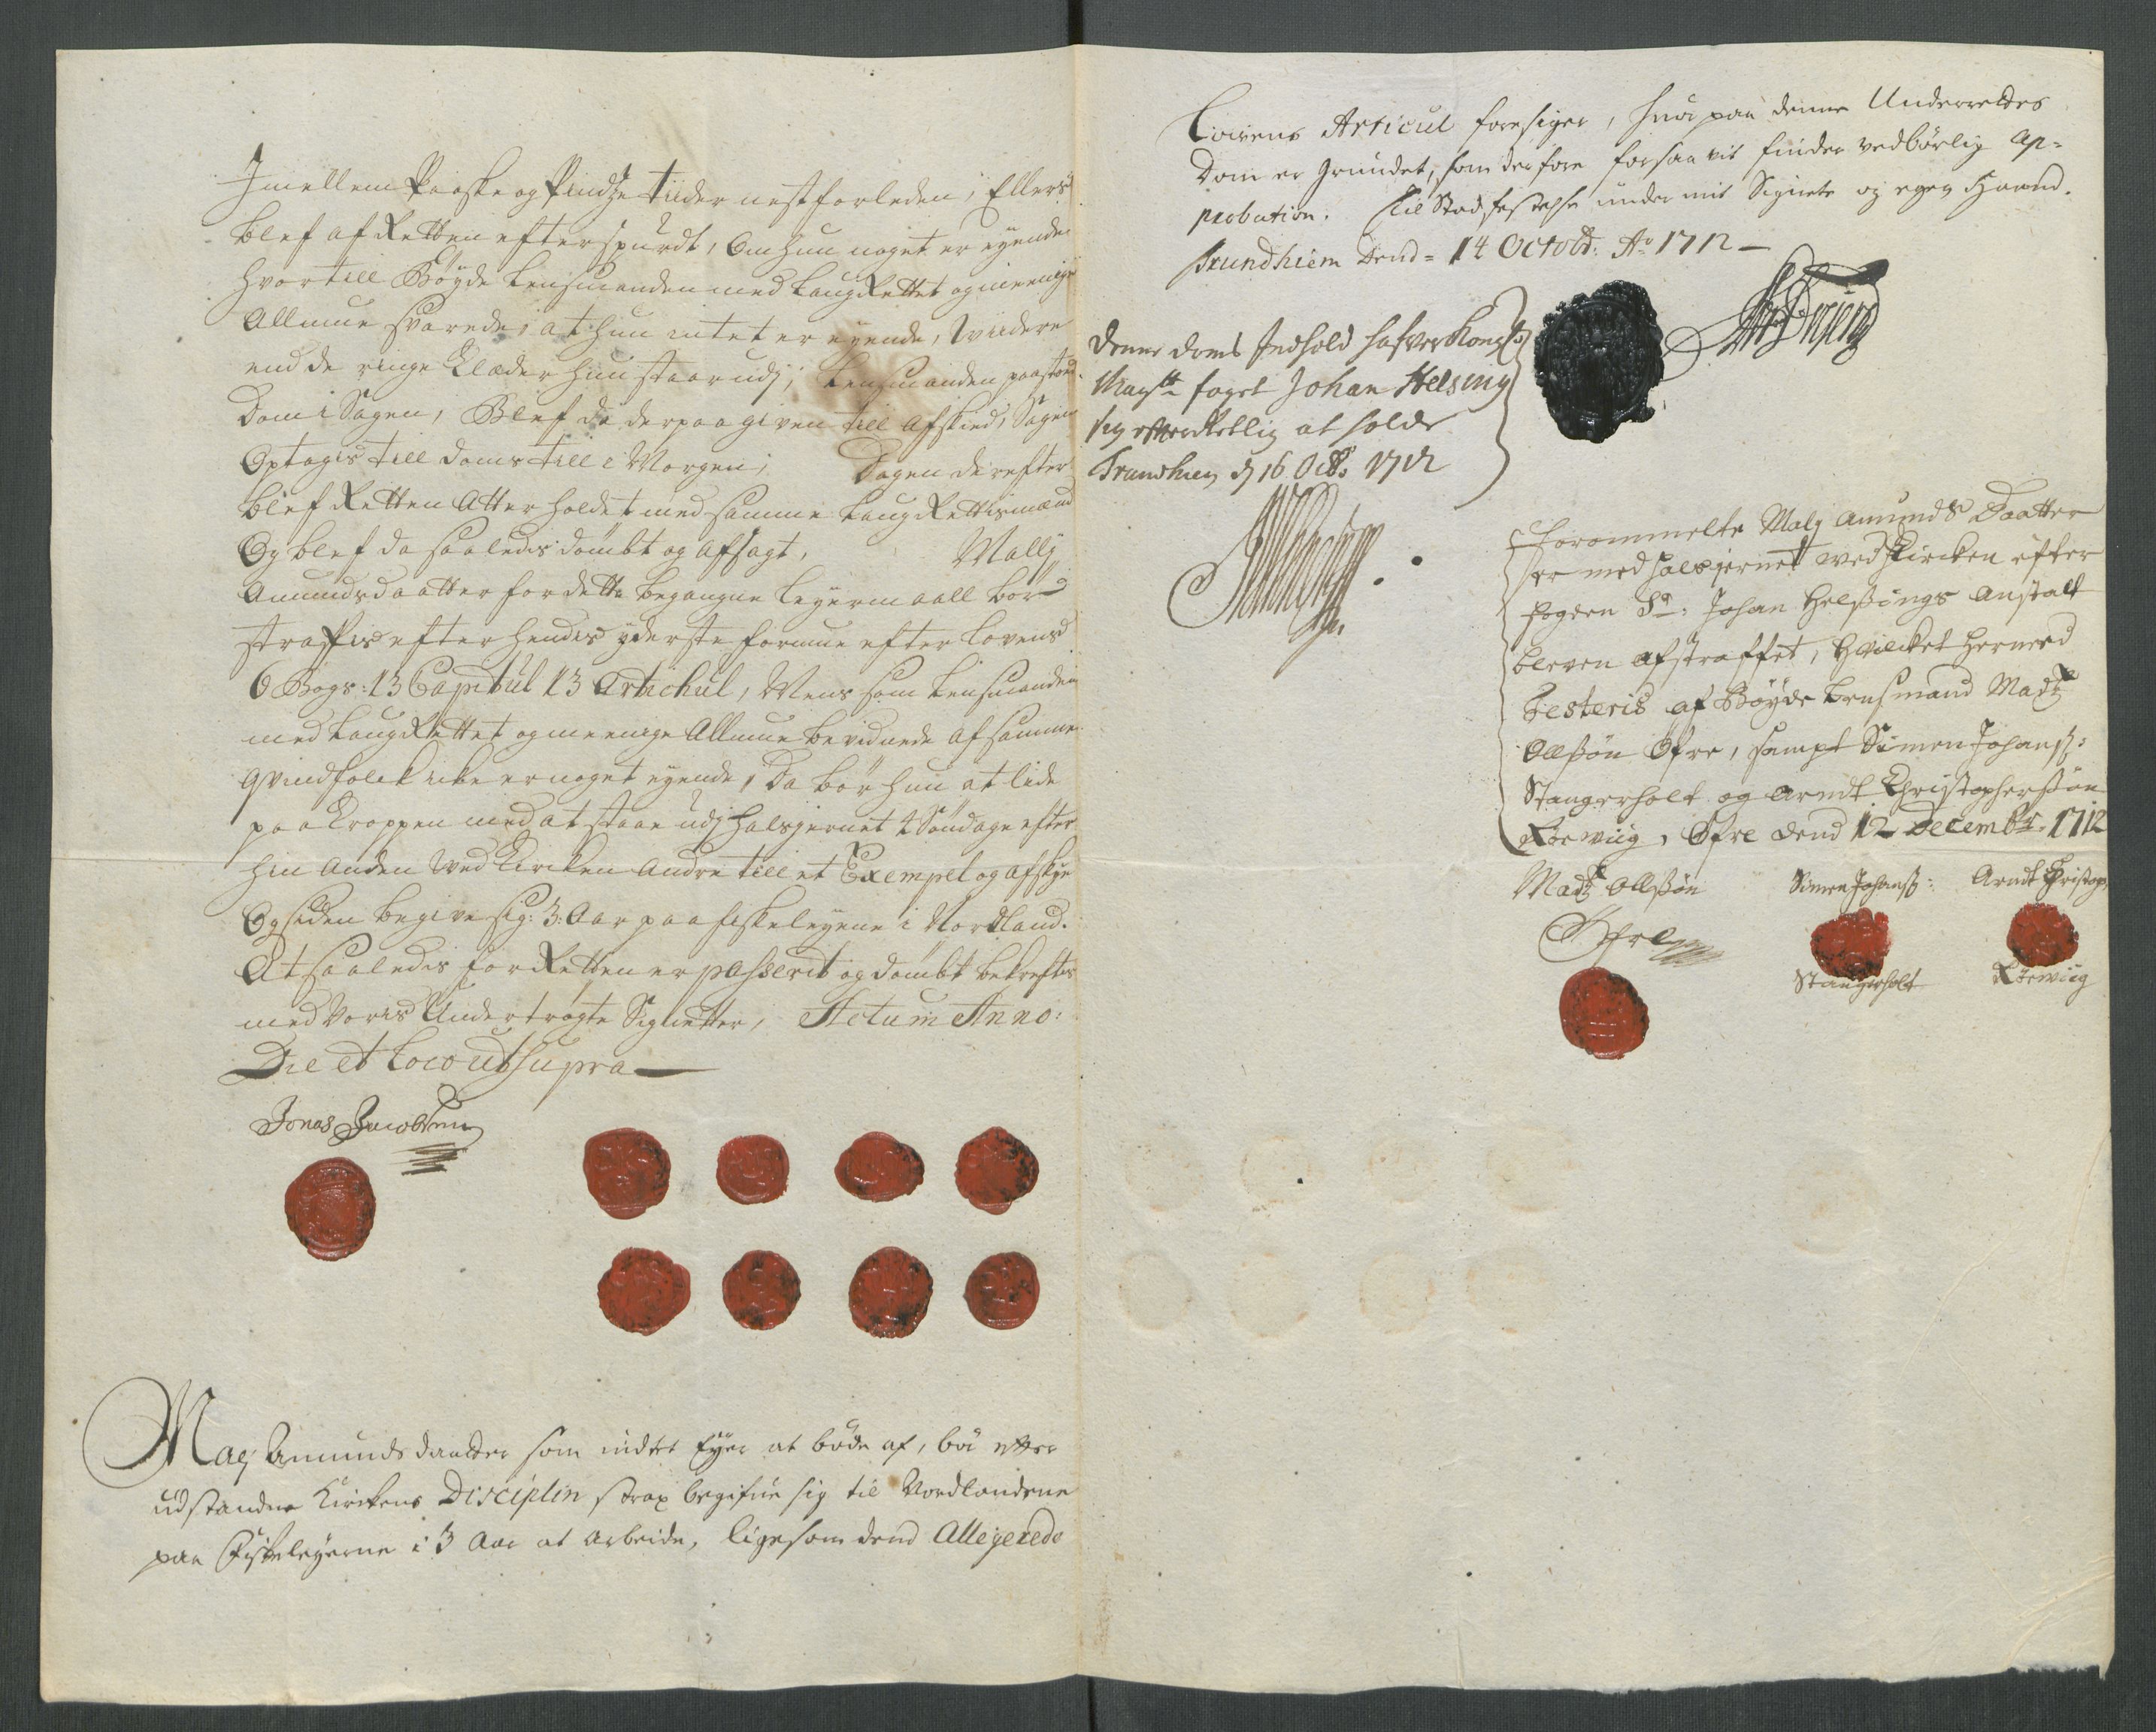 Imellem Paaske og Pindtze tiider nestforleden; Ellers
blef af Retten efterspurdt, Om hun noget er eyende
hvortill Bøyde Lensmanden med LaugRettet og meenige
Allmue svarede; at hun intet er eyende, Widere
end de ringe Klæder hun staar udj; Lensmanden paastod
Dom i Sagen, Blef da derpaa given till Afskied, Sagen
Optagis till doms till i Morgen; Dagen derefter
blef Retten Atter holdet med samme LaugRettismænd
Og blef da saaledis dømbt og Afsagt, Mallj
Amundsdaatter for dette begangne Leyermaall bør
straffis efter hendis yderste formue efter Lovens
6 Bogs: 13 Capitul 13 Artichul, Mens som Lensmanden
med LaugRettet og meenige Allmue bevidnede af samme
Qvindfolck icke er noget eyende, Da bør hun at lide
paa Kroppen med at staae udj Halsjernet 4 Søndage efter
hin Anden Wed Kircken Andre till et Exempel og Afskye
Og siden begive sig: 3: Aar paa fiskeleyene i Nordland.
At saaledis for Retten er passerit og dømbt bekreftes
med Voris Undertrøgte Signetter, Actum Anno:
Die et Loco ut supra
Jonas Jacobsen
Malj Amundsdaatter som indtet Eyer at bøde af, bør efter
udstandne Kirckens Disciplin strax begifue sig til Nordlandene
paa Fiskeleyerne i 3 Aar at Arbeide, ligesom dend Allegerede
Lovens Articul forsiger, huor paa denne Underrettes
Dom er Grundet, som derfore forsaavit finder vedbørlig Ap-
probation. Til Stadfestelse under mit Signete og egen Haand.
Trundhiem Dend 14 Octobr: Ao 1712
Denne doms Indhold hafver Kongl:
Mayts foget Johan Helsing
sig efterretlig at holde
Trundhiem d 16 Octbr: 1712
Forommelte Malj Amunds Daatter
er med halsjernet wed Kircken efter
fogden Sr: Johan Helsings Anstalt
bleven Afstraffet, Hvilcket hermed
Testeris af Bøyde Lensmand Madtz
Ollssøn Øfre, sampt Simen Johanss:
Stangerholt og Arendt Christopherssøn
Rørwiig, Øfre dend 12 Decembr: 1712
Madtz Ollssøn Simen Johanss: Arndt Christoph
Øfre
Stangerholt Rørwiig